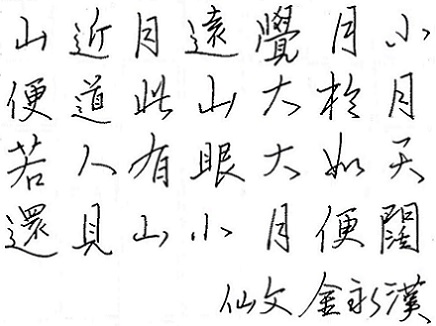 山近月遠覺月小
便道此山大於月
若人有眼大如天
還見山小月便闊
仙文 金永漢